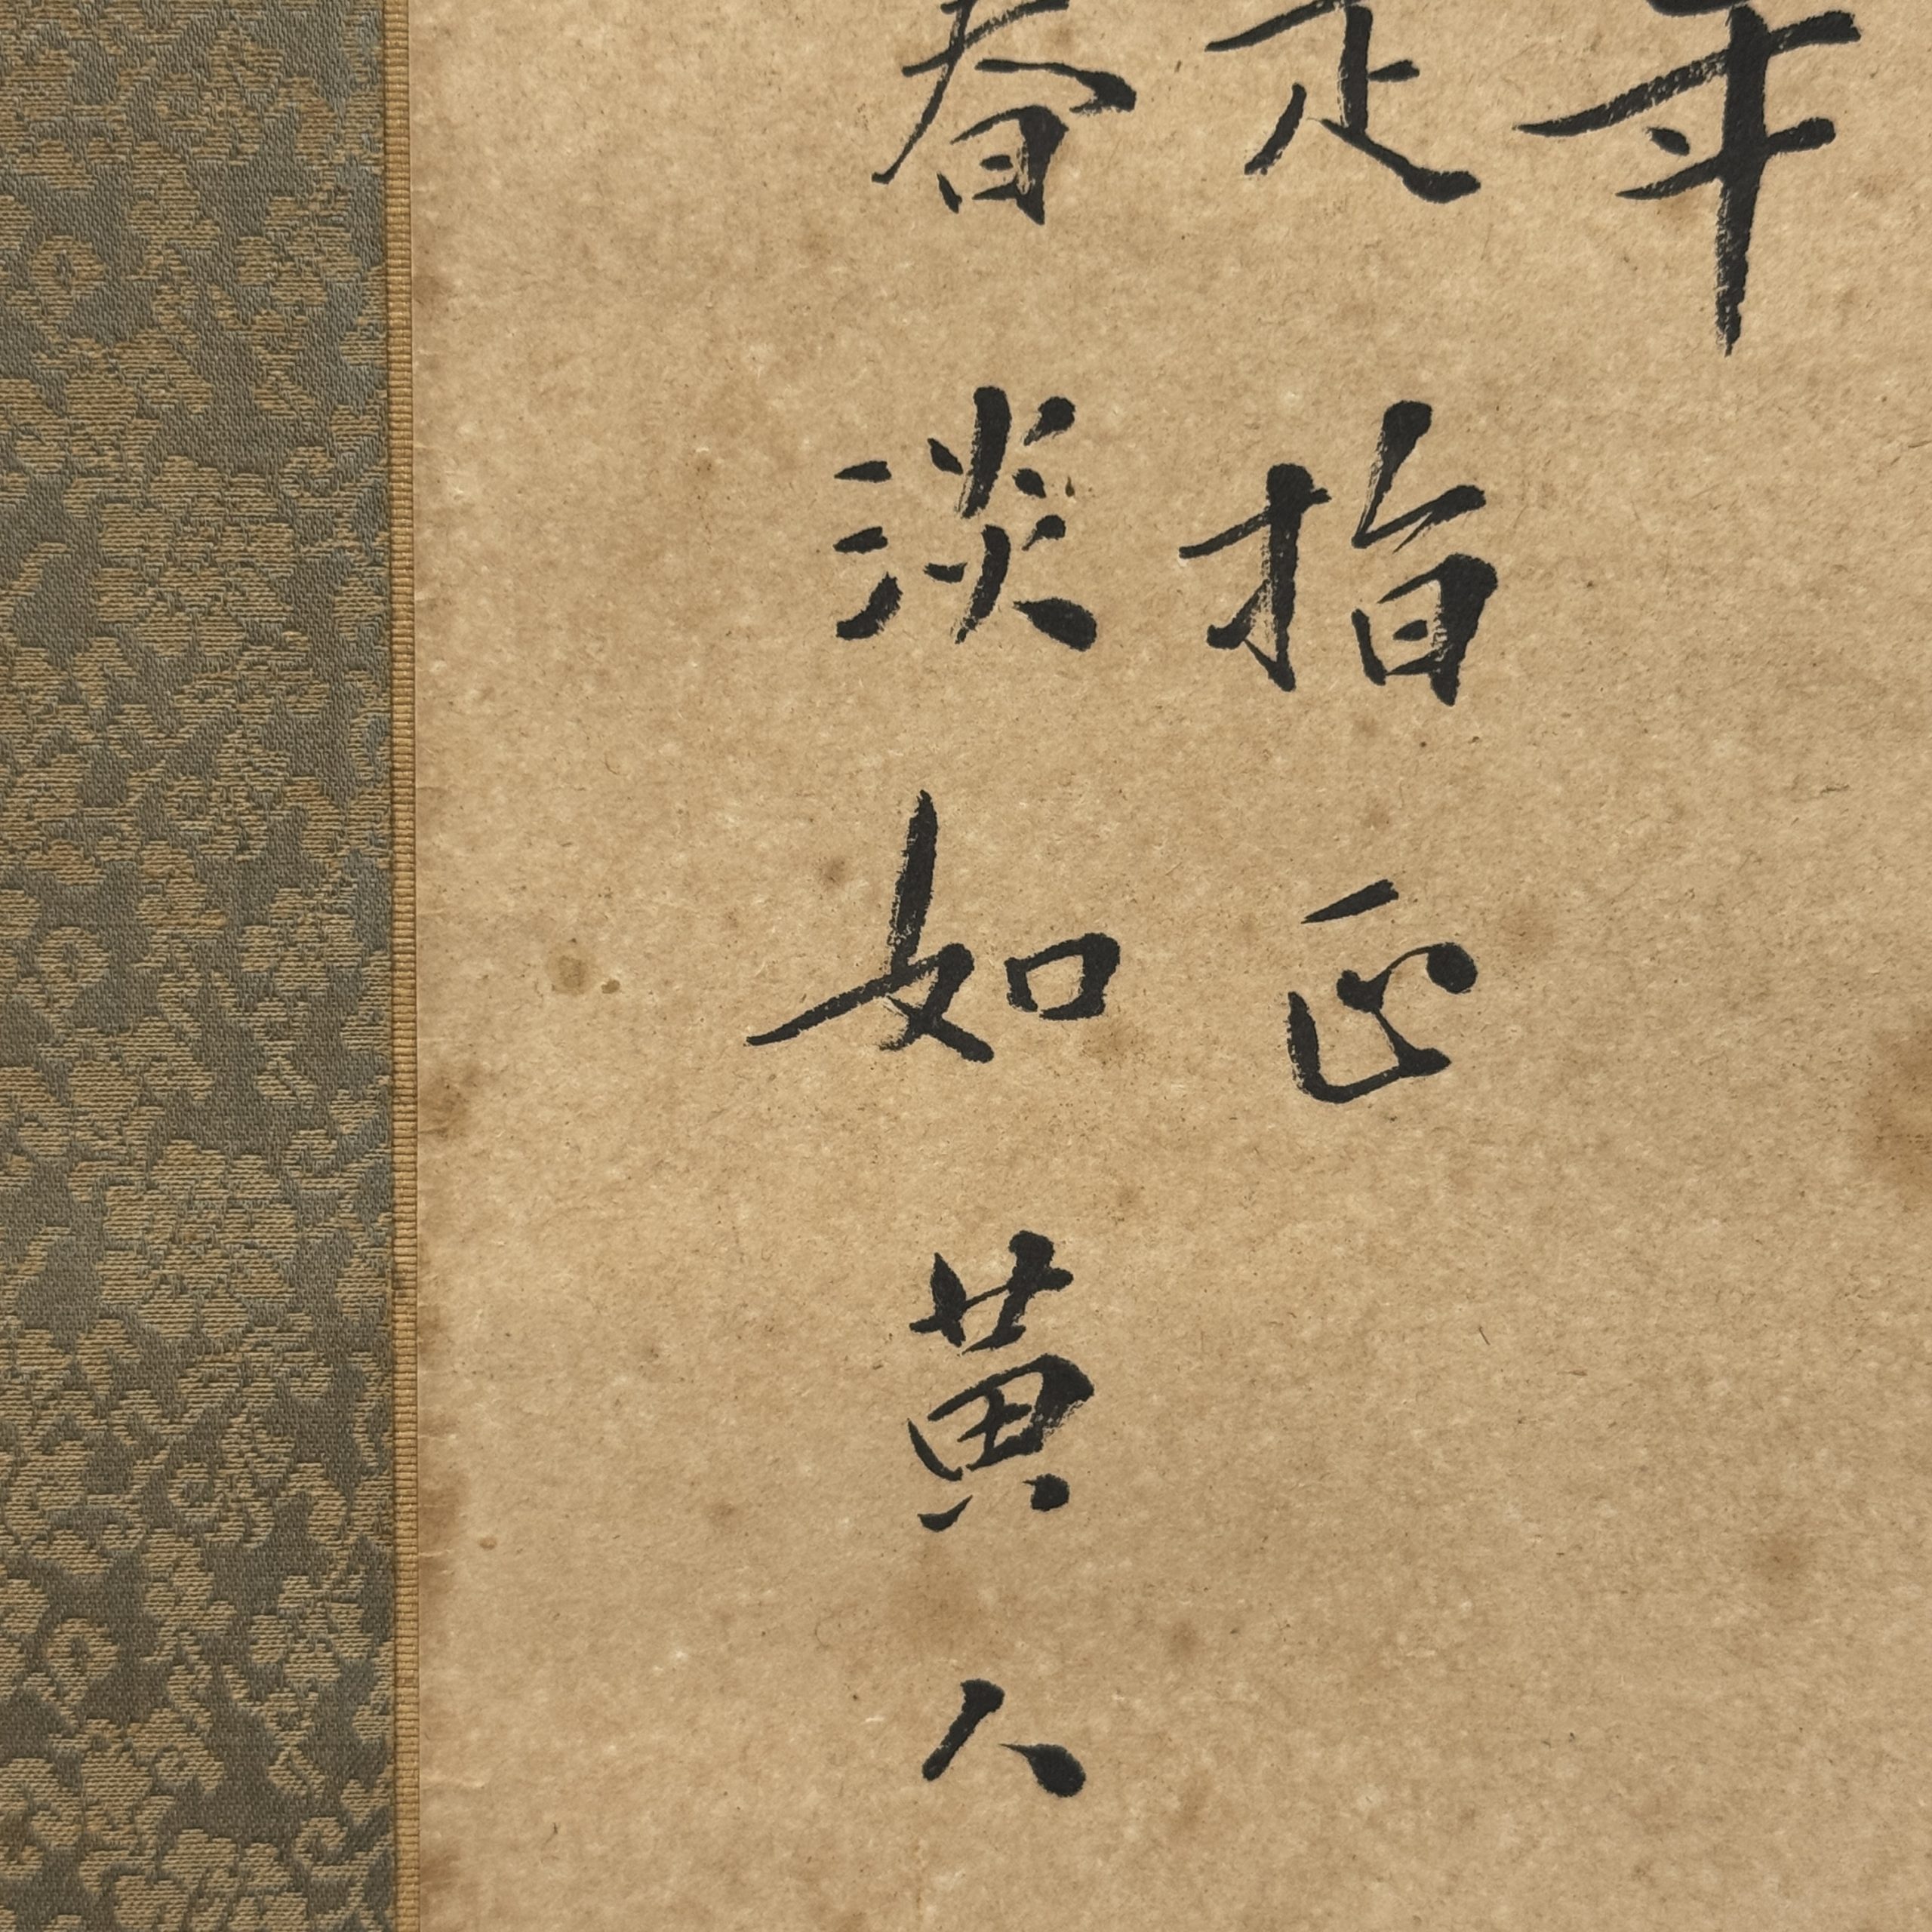 年
指正
春淡如黄人